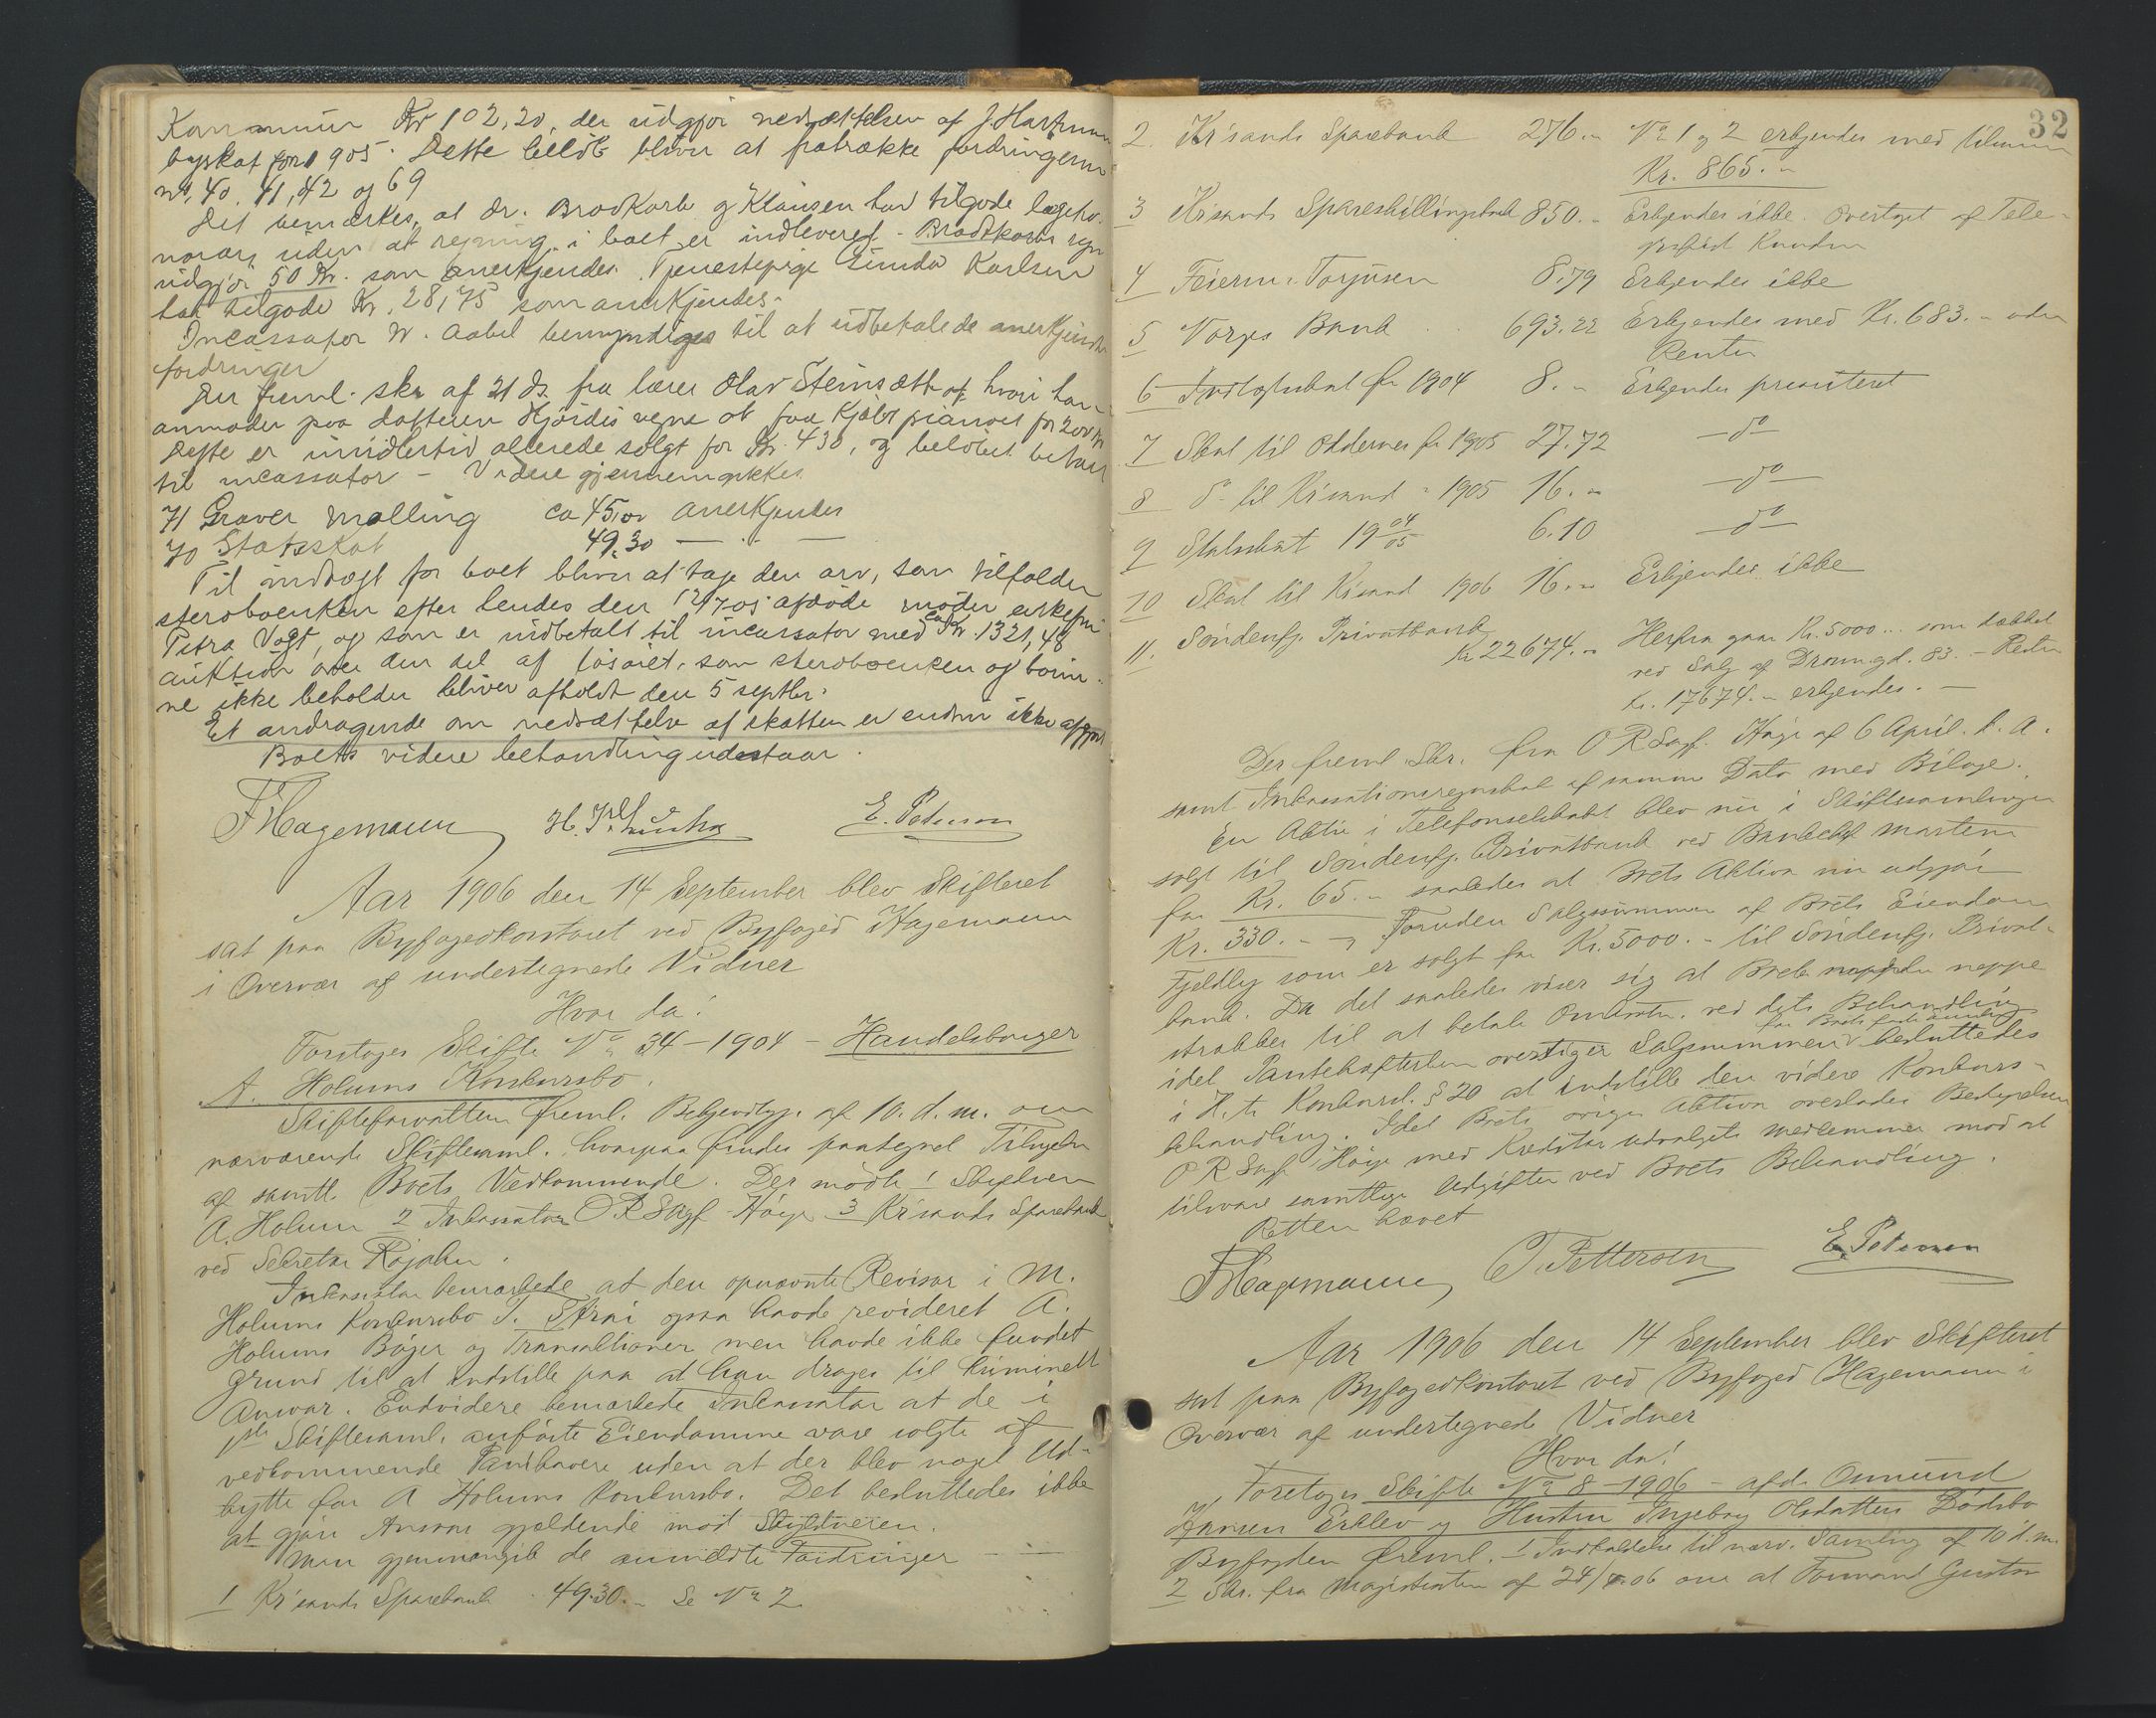 Kommun Kr 102,20, der udgjør nedsættelsen af J. Hartmann
byskat for 1905. Dette beløb bliver at fratrække fordringerne
no. 40, 41, 42 og 69
Det bemærkes, at dr. Brodkorb og Klausen har tilgode lægeho-
norar, uden at regning i boet er indleveret. Brodtkorbs regn
udgjør 50 Kr. som anerkjendes. Tjenestepige Karlsen
har tilgode Kr. 28,75 som anerkjendes.
Incassator N. Aabel bemyndiges til at udbetale de anerkjendte
fordringer
Der freml. skr. af 21 ds. fra lærer Olav Steinsæth, hvori han
anmoder paa datteren Hjørdis vegne at faa kjøbt pianoet for 200 Kr
Dette er imidlertid allerede solgt for Kr. 430, og beløbet betalt
til incassator - Videre gjennemgikkes
71 Graver Mølling ca 45,00 anerkjendes
70 Statsskat 49,30 — " —
Til indtægt for boet bliver at tage den arv, som tilfalder
sterboenken efter hendes den 12/7 05 afdøde moder enkefru
Petra Vogt, og som er indbetalt til incassator med ca Kr. 1321,48
auktion over den del af løsøret, som sterboenken og børne-
ne ikke beholder bliver afholdt den 5 septbr.
Et andragende om nedsættelse af skatten er endnu ikke afgjort
Boets videre behandling udestaar.
FHagemann E. Petersen
Aar 1906 den 14 September blev Skifteret
sat paa Byfogedkontoret ved Byfoged Hagemann
i Overvær af undertegnede Vidner
Hvor da!
Foretoges Skifte No 34-1904 - Handelsborger
A. Holums Konkursbo.
Skifteforvalteren freml. Bekjendtgj. af 10. d. m. om
nærværende Skiftesaml. hvorpaa findes paategnet Tilsigelse
af samtl. Boets Vedkommende. Der mødte 1 Skyldneren
A. Holum 2 Inkassator O R Sagf. Høye 3 Kr'sands Sparebank
ved Sekretær
Inkassator bemærkede at den opnævnte Revisor i M.
Holums Konkursbo T. Strai ogsaa havde revideret A.
Holums Bøger og Transaktioner men havde ikke fundet
Grund til at indstille paa at han drages til kriminelt
Ansvar. Endvidere bemærkede Inkassator at de i
1ste Skiftesaml. anførte Eiendomme vare solgte af
vedkommende Panthavere uden at der blev noget Ud-
bytte for A Holums Konkursbo. Det besluttedes ikke
at gjøre Ansvar gjældende mod Skyldneren.
Man gjennemgik de anmeldte Fordringer
1 Kr'sands Sparebank 4930.- Se No 2
32
2. Kr'sands Sparebank 276.- No 1 og 2 erkjendes med tilsammen
Kr. 865.-
3 Kr'sands Spareskillingsbank 850.- Erkjendes ikke. Overtaget af Tele-
grafist Knudsen
4 Feierm. Torjusen 8.79 Erkjendes ikke
5 Norges Bank 693.22 Erkjendes med Kr. 683.- uden
Renter
6 Indtægtsskat for 1904 8.- Erkjendes prioriteret
7 Skat til Oddernes for 1905 27.72 — do —
8 do til Kr'sand " 1905 16.- — do —
9 Statsskat 1904/05 6.10 — do —
10 Skat til Kr'sand 1906 16.- Erkjendes ikke
11. Søndenfj. Privatbank Kr. 22674.- Herfra gaar Kr. 5000.. som dækket
ved Salg af Dronn.gd. 83. - Resten
Kr. 17674.- erkjendes. -
Der freml. Skr. fra O R Sagf. Høye af 6 April. d. A.
samt Inkassationsregnskab af samme Dato med Bilage.
En Aktie i Telefonselskabet blev nu i Skiftesamlingen
solgt til Søndenfj. Privatbank ved Bankchef Martens
for Kr. 65.- saaledes at Boets Aktiva nu udgjør
Kr. 330.- foruden Salgssummen af Boets Eiendom
Fjeldly som er solgt for Kr. 5000.- til Søndenfj. Privat-
bank. Da det saaledes viser sig at Boets neppe
strækker til at betale Omkostn. ved dets Behandling
idet Pantehæftelsen overstiger Salgssummen for Boets faste besluttedes
i H. t. Konkursl. § 20 at indstille den videre Konkurs-
behandling. Idet Boets øvrige Aktiva overlades Bestyrelsen
O R Sagf. Høye med Kreditorudvalgets medlemmer mod at
tilsvare samtlige Udgifter ved Boets Behandling.
Retten hævet
FHagemann T. Pettersen E. Petersen
Aar 1906 den 14 September blev Skifteret
sat paa Byfogedkontoret ved Byfoged Hagemann i
Overvær af undertegnede Vidner
Hvor da!
Foretoges Skifte No 8-1906 - afd. Omund
Hansen Eiklev og Hustru Ingeborg Olsdatters Dødsbo
Byfogden freml. 1 Indkaldelse til nærv. Samling af 10 d. m.
2 Skr. fra Magistraten af 24/ 06 om at Formand Gustav